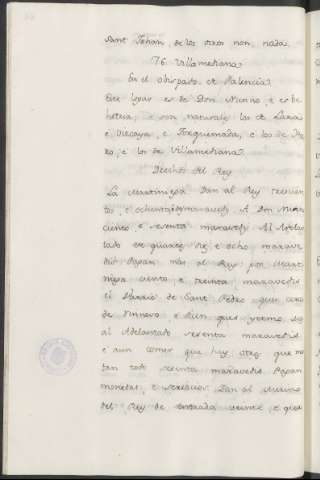 Sant Johan, de los otros non nada.
76 Villamediana
En el obispado de Palencia
Este logar es de Don Nunno, e es be
hetria, e son naturales los de Lara
e Vizcaya, e Torquemada, e los de
ro, e los de Villamediana.
Derechos del Rey
La Martiniega dan al Rey
to, e ochenta maravedis. A Don Nunno
ciento, e sesenta maravedis. Al Adelan
tado diez e ocho marave
dis. Pagan mas al Rey por Marti
niega ciento e treinta maravedis
el Barrio de Sant Pedro, que era
de Nunnero, e bien que es yermo, da
al Adelantado sesenta maravedis
e aun comer que hay otros que mon
tan todo sesenta maravedis. Pagan
monedas, e servicios. Dan al Merino
del Rey de entrada veinte e qua